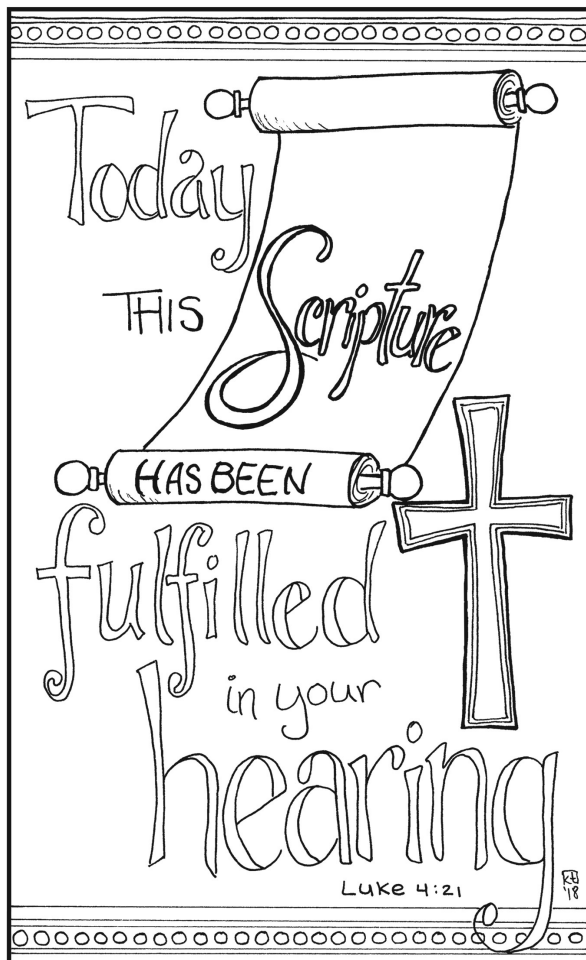 Today
THIS Scripture
HAS BEEN
fulfilled
in your
hearing
Luke 4:21
'18